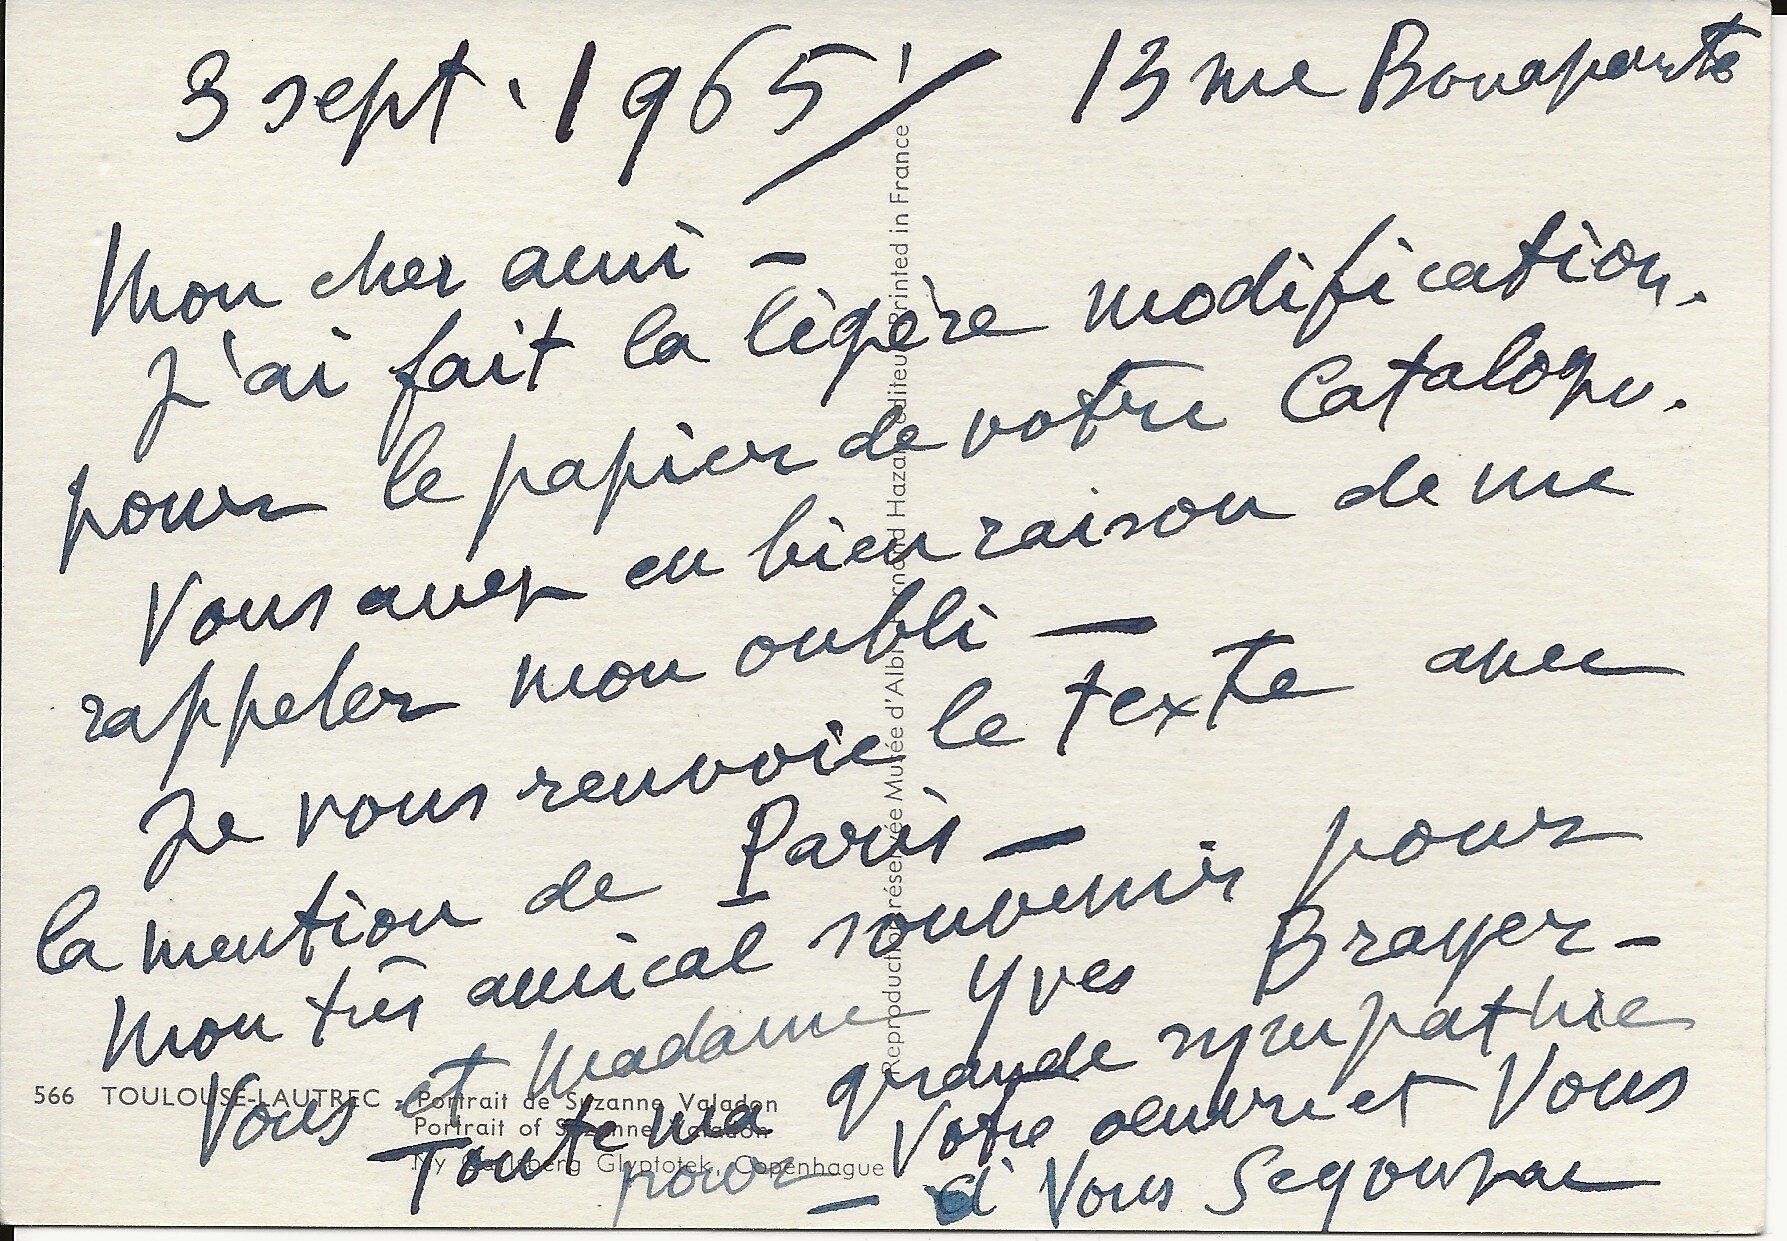 3 sept. 1965 13 rue Bonaparte
Mon cher ami –
J'ai fait la légère modification.
pour le papier de votre Catalogu.
Vous avez eu bien raison de me
rappeler mon oubli –
Je vous renvoie le texte avec
la mention de Paris –
Mon très amical souvenir pour
Vous et Madame Yves Brayer –
Toute ma grande sympathie
pour Votre œuvre et Vous
– à Vous Segonzac
566 TOULOUSE-LAUTREC - Portrait de Suzanne Valadon
Portrait of Suzanne Valadon
Ny Carlsberg Glyptotek, Copenhague
Reproduction réservée Musée d'Albi - Fernand Hazan éditeur Printed in France